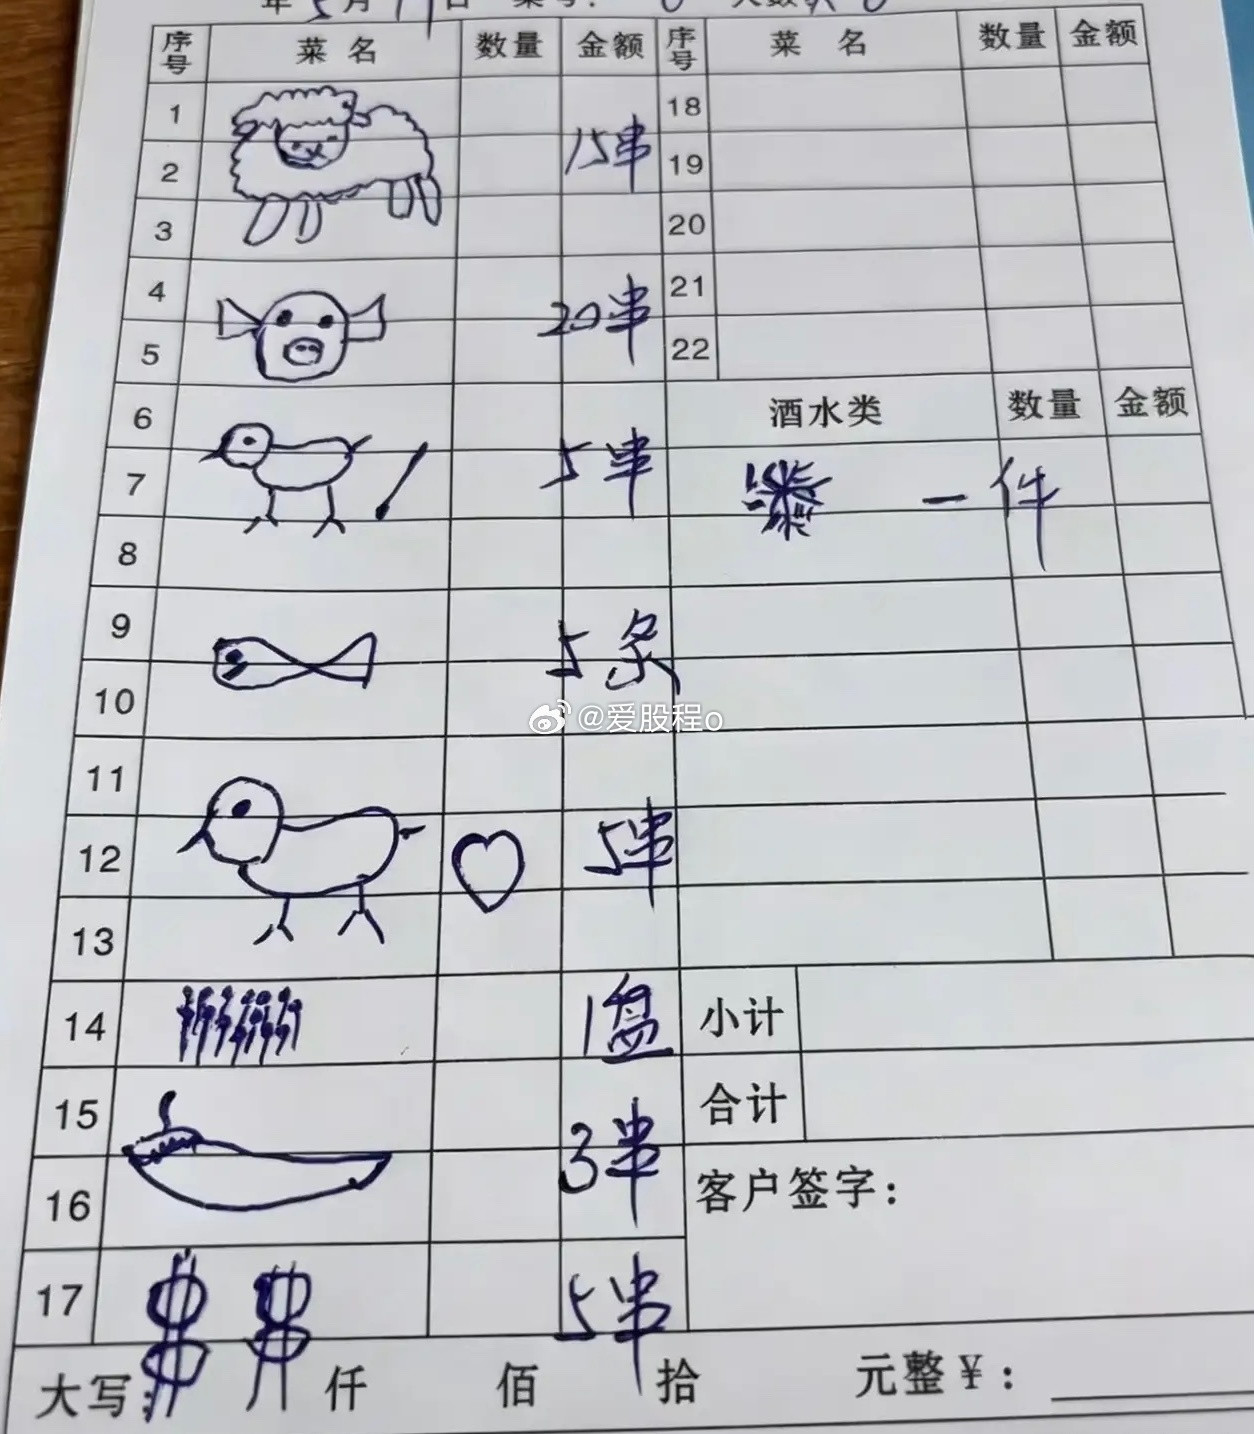 年5月19日
序号 菜名 数量 金额 序号 菜名 数量 金额
1 18
15串
2 19
3 20
4 21
20串
5 22
6 酒水类 数量 金额
7 5串 一件
8
9
5条
10
@爱股程o
11
12 5串
13
14 1盘 小计
15 合计
3串
16 客户签字：
17 5串
大写: 仟 佰 拾 元整￥：